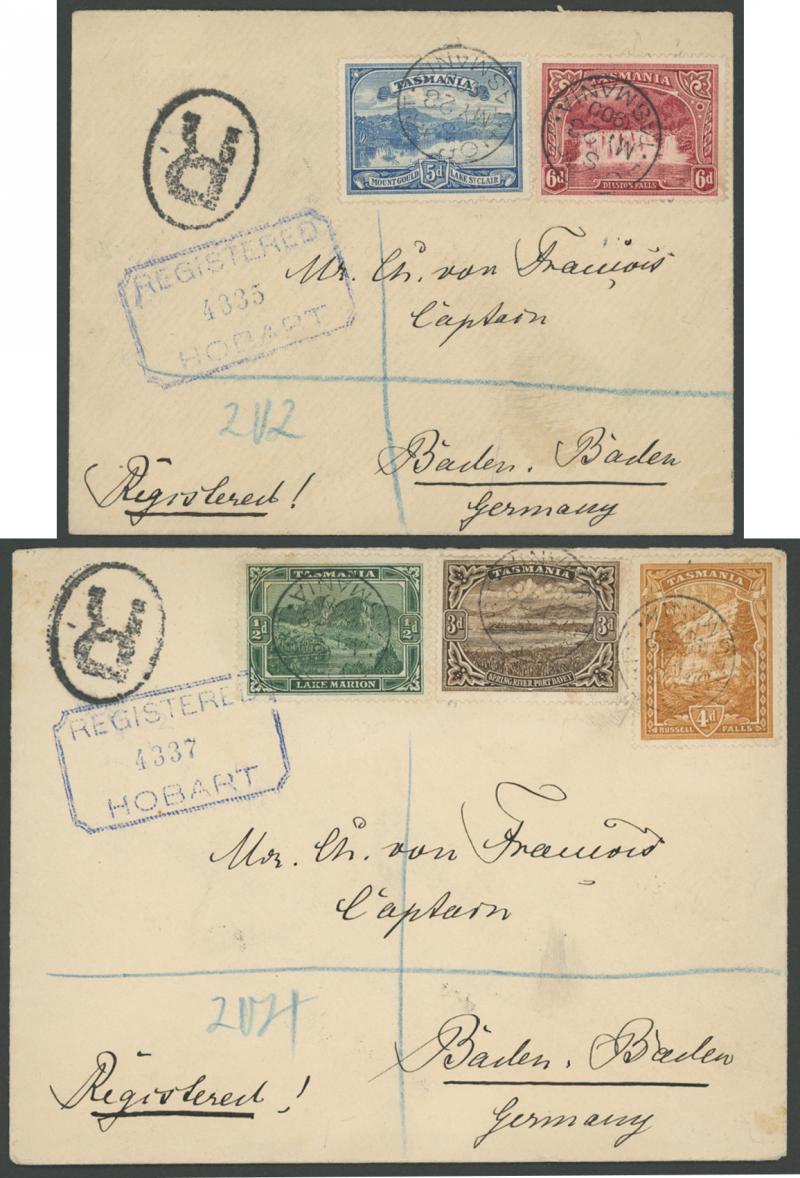 R
TASMANIA
5d
MOUNT GOULD LAKE ST CLAIR
TASMANIA
MY 23
TASMANIA
6d 6d
DILSTON FALLS
TASMANIA
MY 23
REGISTERED
4335
HOBART
Mr. Ch. von François
Captain
212
Registered!
Baden. Baden
Germany
R
TASMANIA
½d ½d
LAKE MARION
TASMANIA
3d 3d
SPRING RIVER PORT DAVEY
TASMANIA
4d
RUSSELL FALLS
REGISTERED
4337
HOBART
Mr. Ch. von François
Captain
Registered!
Baden. Baden
Germany